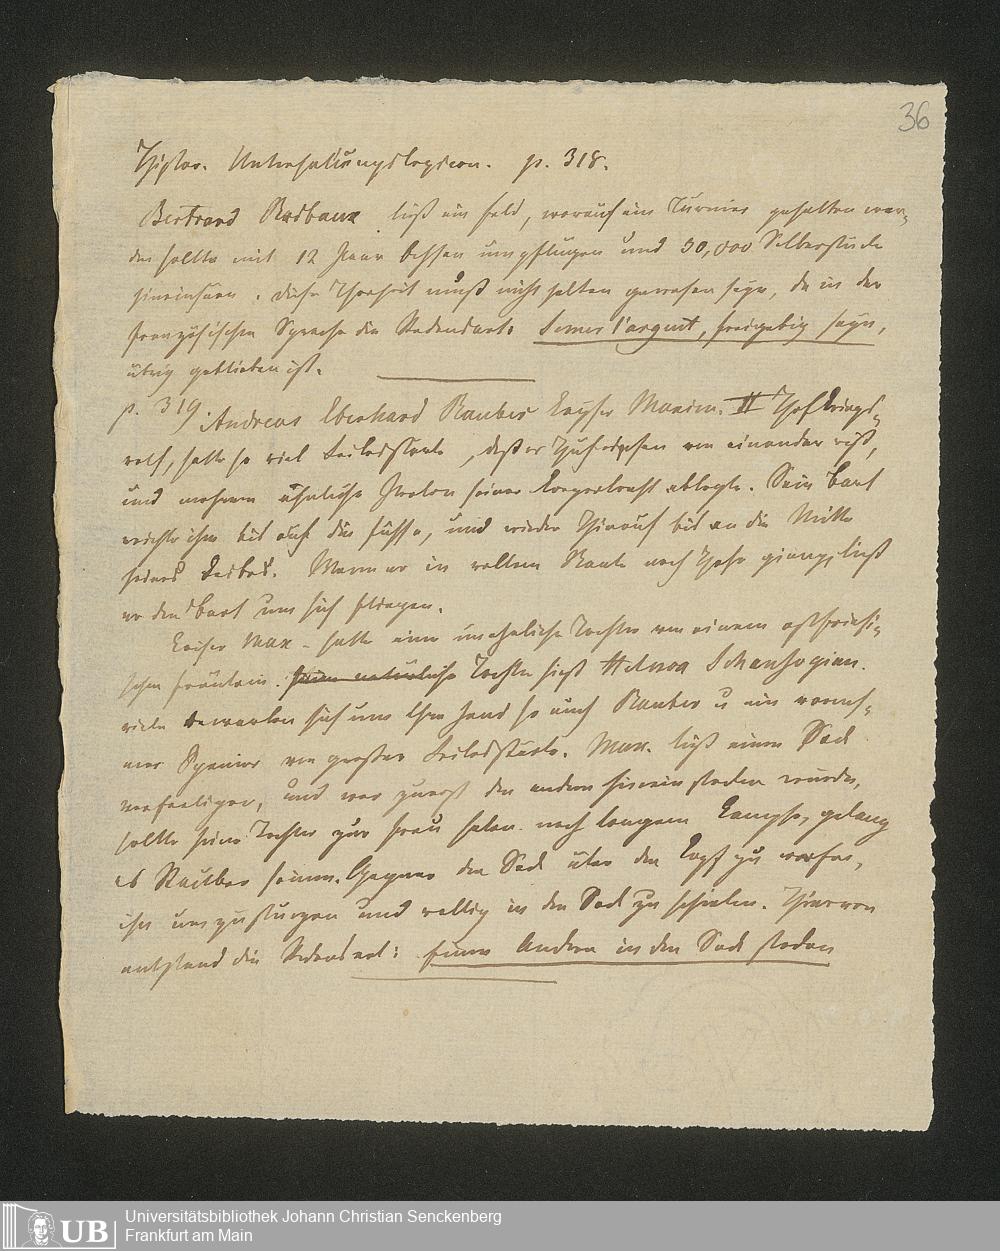 36
Histor. Unterhaltungslexicon. p. 318.
Bertrand Raibaux ließ ein Feld, worauf ein Turnier gehalten wer-
den sollte mit 12 Paar Ochsen umpflügen und 30,000 Silberstücke
hineinsäen. Diese Thorheit muß nicht selten gewesen seyn, da in der
französischen Sprache die Redensart: Semer l'argent, freigebig seyn,
übrig geblieben ist.
p. 319. Andreas Eberhard Rauber Kayser Maxim. II Hofkriegs-
rath, hatte so viel Leibesstärke, daß er Hufeisen von einander riß,
und mehrere ähnliche Proben seiner Körperkraft ablegte. Sein Bart
reichte ihm bis auf die Füsse, und wieder hinauf bis an die Mitte
seines Leibes. Wenn er in vollem Staate nach Hofe gieng, ließ
er den Bart um sich fliegen.
Kaiser Max hatte eine uneheliche Tochter von einem ostfriesi-
schen Fräulein. Seine natürliche Tochter hieß Helena Scharseginn.
viele bewarben sich um ihre Hand so auch Rauber u ein vorneh-
mer Spanier von großer Leibesstärke. Max. ließ einen Sack
verfertigen, und wer zuerst den andern hineinstecken würde,
sollte seine Tochter zur Frau haben. nach langem Kampfe, gelang
es Rauber seinem Gegner den Sack über den Kopf zu werfen,
ihn umzustürzen und völlig in den Sack zu schieben. Hiervon
entstand die Redensart: Einen Andern in den Sack stecken
UB
Universitätsbibliothek Johann Christian Senckenberg
Frankfurt am Main